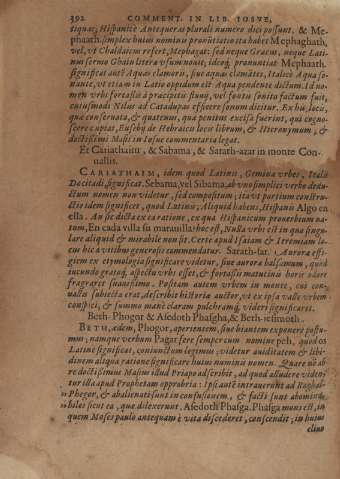 392 COMMENT. IN LIB. IOSVE,
tiquas; Hispanicè Antequeras plurali numero dici possunt. & Me-
phaath. simplex huius nominis pronūtiatio sta habet Mephaghath,
vel, vt Chaldaism refert, Mephagat: sed neque Græcus, neque Lati-
nus sermo Ghain litera vsum nouit, ideoq; pronuntiat Mephaath.
significat autē Aquas clamoris, siue aquas clamātes, Italicè Aqua so-
nante, vt etiam in Latio oppidum est Aqua pendente dictum. Id no-
men vrbs fortasse à præcipitis fluuij, vel fontis sonitu factum fuit,
cuiusmodi Nilus ad Catadupas efficere sonum dicitur. Ex his, locu,
quæ conseruata, & quatenus, qua penitus excisa fuerint, qui cogno-
scere cupiat, Eusebij de Hebraicis locis librum, & Hieronymum, &
doctissimi Masij in Iosue commentaria legat.
Et Cariathaim, & Sabama, & Sarath-azar in monte Con-
uallis.
CARIATHAIM, idem quod Latinis, Gemina vrbes, Italis
Docitadi, significat. Sebama, vel Sibama, ab vno simplici verbo dedu-
ctum nomen non videtur, sed compositum, ita vt partium constru-
ctio idem significet, quod Latinis, Aliquid habens, Hispanis Algo en
ella. An sic dicta ex ea ratione, ex qua Hispanicum prouerbium na-
tum, En cada villa su marauilla: hoc est, Nulla vrbs est in qua singu-
lare aliquid & mirabile non sit. Certè apud Isaiam & Ieremiam lo-
cus hic à vitibus generosis commendatur. Sarath-sar. Aurora effi-
giem ex etymologia significare videtur, siue aurora balsamum, quod
iucundo gratoq; aspectu vrbs esset, & fortassis matutina horis odore
fragraret suauissimo. Positam autem vrbem in monte, cos con-
uallis subiecta erat, describit historia auctor, vt ex ipsa valle vrbem
conspici, & summo manè claram pulchramq; videri significaret.
Beth-Phogor & Asedoth Phasgha, & Beth-iesimoth.
BETH, ædem, Phogor, aperientem, siue hiantem exponere possu-
mus; namque verbum Pagar ferè semper cum nomine peh, quod os
Latinè significat, coniunctum legimus; videtur auiditatem & libi-
dinem aliqua ratione significare huius nominis nomen. Quare no
re doctissimus Masius illud Priapo adscribit, ad quod alludere viden-
tur illa apud Prophetam opprobria: Ipsi autē intrauerunt ad Beelphe-
Phegor, & abalienati sunt in confusionem, & facti sunt abomina-
biles sicut ea, quæ dilexerunt. Asedoth Phasga. Phasga mons est, in
quem Moses paulo antequam è vita discederet, conscendit; in huius
cliuo